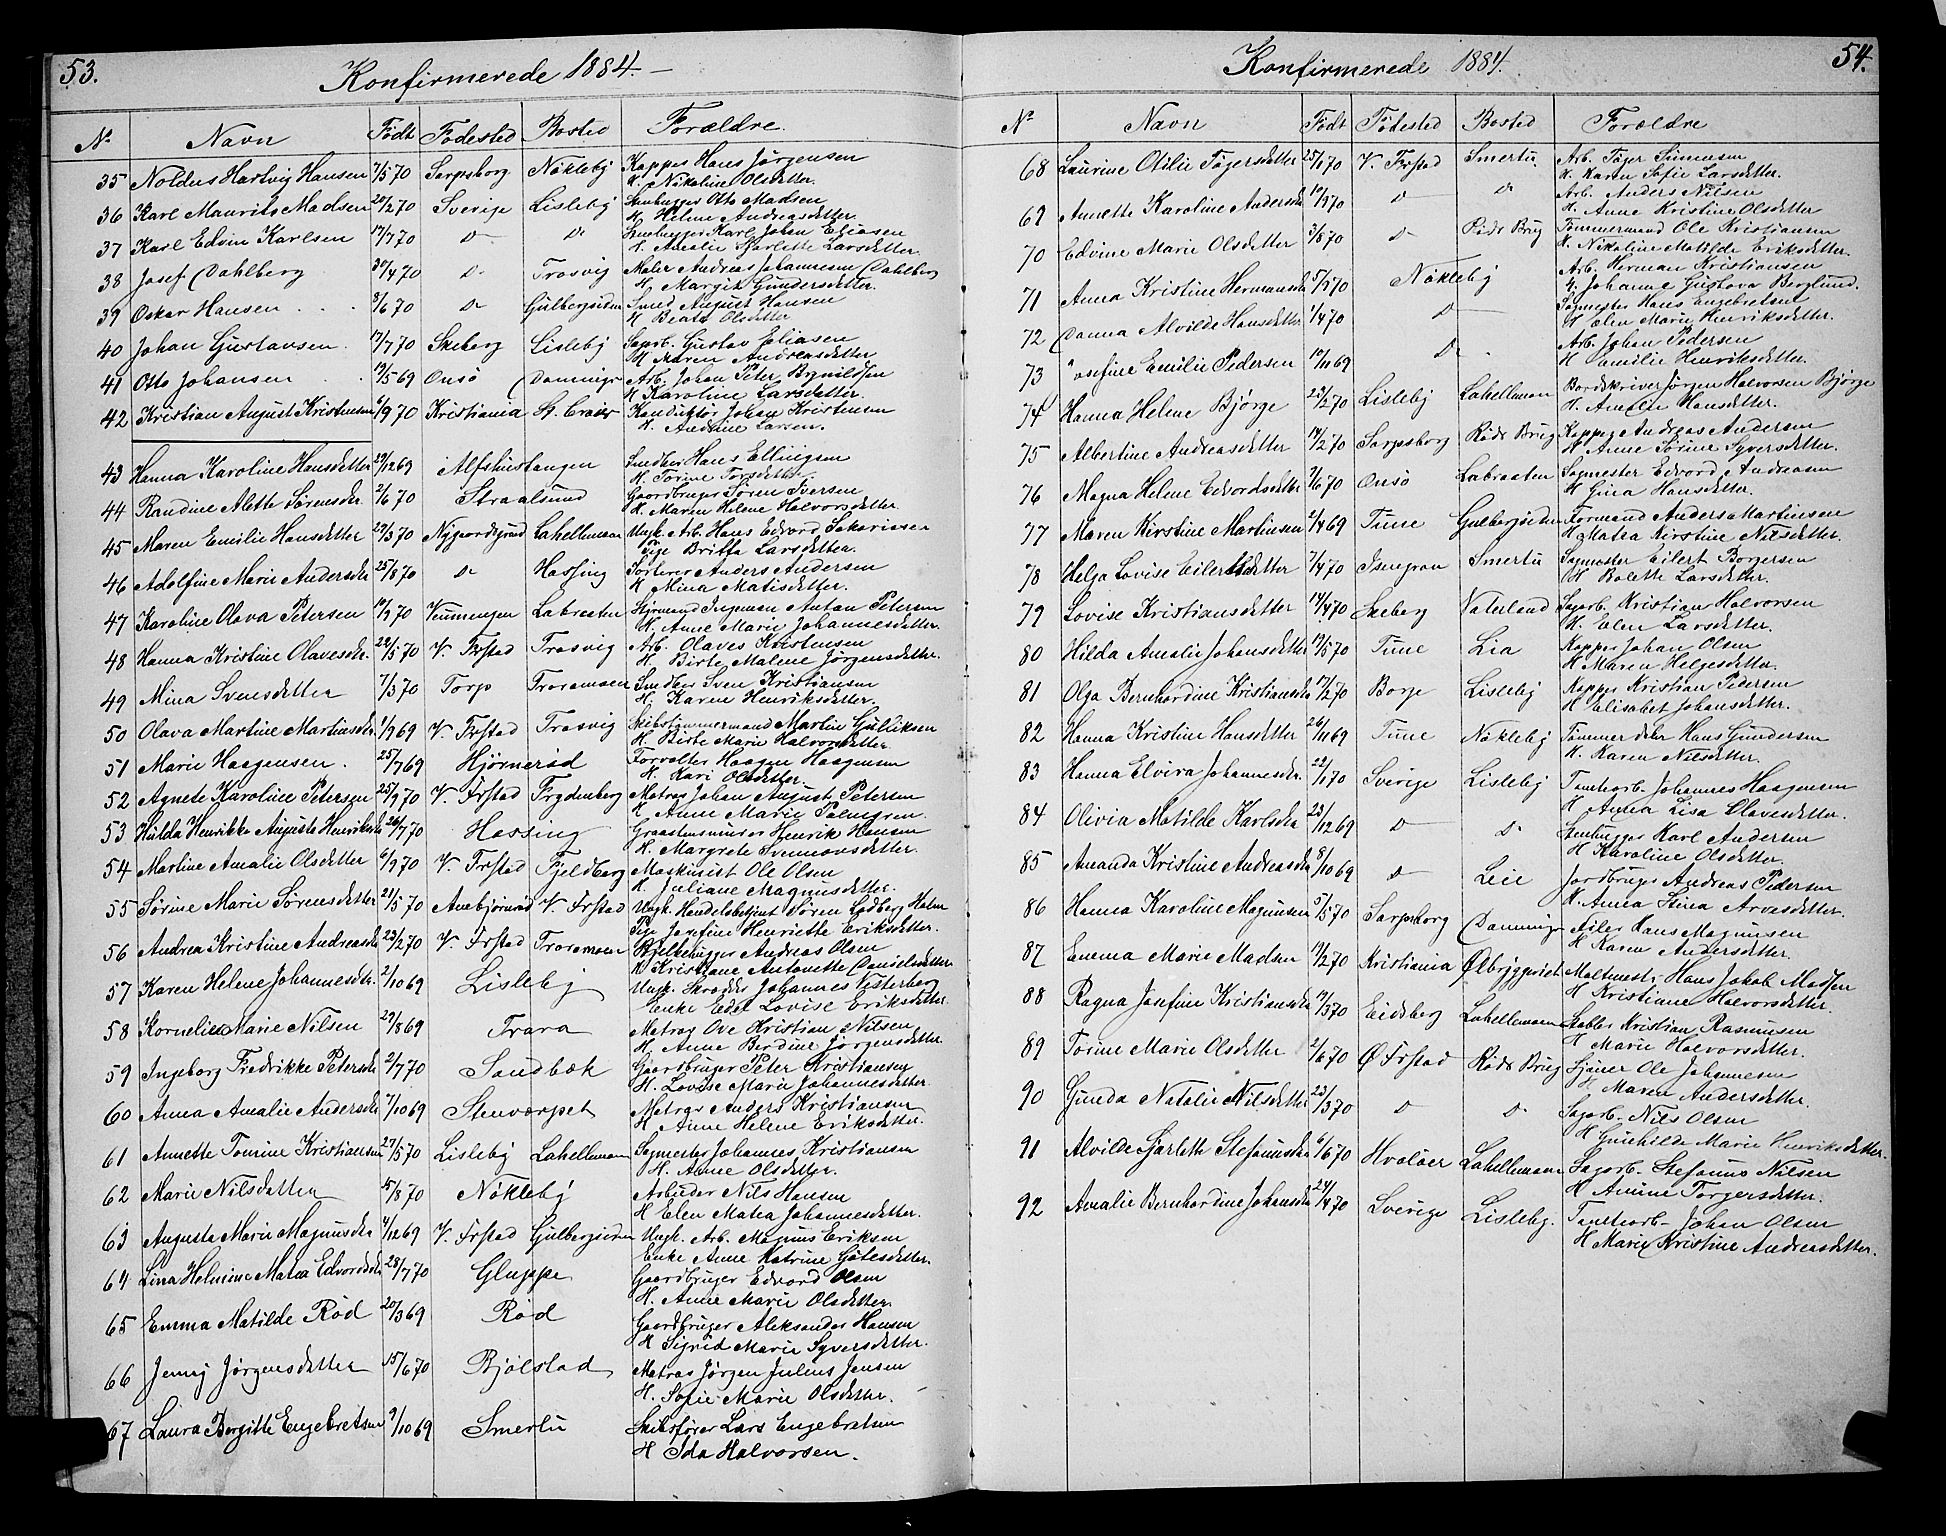 53.
Konfirmerede 1884. —
No Navn Født Fødested Bosted Forældre.
35 Noldus Hartvig Hansen 7/5 70 Sarpsborg Nökleby Kopper Hans Jörgensen
H. Nikoline Olsdetter.
36 Karl Maurits Madsen 20/2 70 Sverige Lisleby Stenhugger Otto Madsen
H. Helene Andreasdetter
37 Karl Edvin Karlsen 17/7 70 D- D- Stenhugger Karl Johan Eliasen
H. Amalie Sjarlotte Larsdetter.
38 Josef Dahlberg 30/4 70 D- Trosvig Maler Andreas Johannesen Dahlberg
H. Margit Gundersdetter.
39 Oskar Hansen 8/6 70 D- Gulbergsiden Smed August Hansen
H Beate Olsdetter
40 Johan Gustavsen 17/7 70 Skeberg Lisleby Sagarb. Gustav Eliasen
H Maren Andreasdetter
41 Otto Johansen 19/5 69 Onsö Damnings- Arb. Johan Peter Brynildsen
H Karoline Larsdetter.
42 Kristian August Kristensen 6/9 70 Kristiania St. Croix Konduktör Johan Kristensen
H. Andrine Larsen.
43 Hanna Karoline Hansdetter 29/12 69 Alfshustangen Smedber Hans Ellingsen
H. Torine Torsdetter.
44 Randine Alette Sörensdtr. 2/6 70 Straalsund Gaardbruger Sören Iversen
H. Maren Helene Halvorsdetter.
45 Maren Emilie Hansdetter 27/3 70 Nygaardsgrund Lahellmoen Ungk. Arb. Hans Edvard Sakariasen
Pige Britha Larsdetter.
46 Adolfine Marie Andersdtr 25/8 70 D- Hassing Sorterer Anders Andersen
H Mina Matisdetter.
47 Karoline Olava Petersen 19/9 70 Vennengen Labraaten Styrmand Ingvman Anton Petersen
H. Anne Marie Johannesdetter.
48 Hanna Kristine Olavesdtr. 22/5 70 V. Frstad Trosvig Arb. Olaves Kristensen
H. Birte Malene Jörgensdetter.
49 Mina Svensdetter 7/3 70 Torp Traramoen Smedber Sven Kristiansen
H. Karen Henriksdetter.
50 Olava Martine Martinsdtr. 1/9 69 V. Frstad Trosvig Skibstømmermand Martin Gulliksen
H. Birte Marie Halvorsdetter
51 Marie Haagensen. 25/7 69 Hjörneröd Forvalter Haagen Haagensen
H. Kari Olsdetter.
52 Agnete Karoline Petersen 25/9 70 V. Frstad Frydenberg Matros Johan August Petersen
H Anne Marie Palmgren.
53 Hulda Henrikke Augusta Henriksdtr 26/7 70 Hassing Graastensmurer Henrik Hansen
H. Margrete Svennovsdetter.
54 Martine Amalie Olsdetter 6/9 70 V. Frstad Fjeldberg Maskinist Ole Olsen
H. Juliane Magnusdetter.
55 Sörine Marie Sörensdetter 21/5 70 Arebjörnröd V. Frstad Ungk. Handelsbetjent Sören Lodberg Holm
Pige Josefine Henriette Eriksdetter.
56 Andrea Kristine Andreasdtr 23/2 70 V. Frstad Traramoen Bjelkehugger Andreas Olsen
H Kristiane Antonette Danielsdetter
57 Karen Helene Johannesdtr. 2/10 69 Lisleby Ungk. Skrædder Johannes Vesterberg
Enke Edel Lovise Eriksdetter.
58 Kornelia Marie Nilsen 27/8 69 Trara Matros Ove Kristian Nilsen
H. Anne Berdine Jørgensdetter
59 Ingeborg Fredrikke Petersdtr 2/7 70 Sandbæk Gaardbruger Peter Kristiansen
H. Lovise Marie Johannesdetter
60 Anna Amalie Andersdtr 7/10 69 Stenvorpet Matros Anders Kristiansen
H Anne Helene Eriksdetter.
61 Annette Tomine Kristiansen 27/5 70 Lisleby Lahellmoen Sagmester Johannes Kristiansen
H. Anne Olsdetter.
62 Marie Nilsdetter 5/8 70 Nökleby Arbeider Nils Hansen
H Elen Matea Johannesdetter.
63 Augusta Marie Magnusdtr 4/12 69 V. Frstad Gulbergsiden Ungk. Arb. Magnus Eriksen
Enke Anne Katrine Götesdetter.
64 Lina Helmine Matea Edvardsdtr 28/7 70 Gluppe Gaardbruger Edvard Olsen
H. Anne Marie Olsdetter.
65 Emma Matilde Röd 20/3 69 Röd Gaardbruger Aleksander Hansen
H Sigrid Marie Syversdetter.
66 Jenny Jörgensdetter 15/6 70 Bjölstad Matros Jørgen Julius Jensen
H. Sofie Marie Olsdetter.
67 Laura Bergitte Engebretsen 9/10 69 Smertu Skibsfører Lars Engebretsen
H Ida Halvorsen.
54.
Konfirmerede 1884.
No Navn Født Fødested Bosted Forældre
68 Laurine Otilie Tögersdetter 25/1 70 V. Frstad Smertu Arb. Töger Simensen
H. Karen Sofie Larsdetter.
69 Annette Karoline Andersdtr 19/3 70 D- D- Arb. Anders Nilsen
H. Anne Kristine Olsdetter
70 Edvine Marie Olsdetter 3/8 70 D- Röds Brug Tømmermand Ole Kristiansen
H. Nikoline Matilde Eriksdetter.
71 Anna Kristine Hermansdtr 5/5 70 Nökleby Arb. Herman Kristiansen
H. Johanne Gustava Berglund.
72 Danna Alvilde Hansdetter 1/4 70 D- Sagmester Hans Engebretsen
H Elen Marie Henriksdetter.
73 Josefine Emilie Pedersen 19/11 69 D- Arb. Johan Pedersen
H Emilie Henriksdetter.
74 Hanna Helene Bjørge 22/2 70 Lisleby Lahellmoen Bordskriver Jørgen Halvorsen Bjørge
H. Amalie Hansdetter.
75 Albertine Andreasdetter 14/2 70 Sarpsborg Röds Brug Kopper Andreas Andersen
H Anne Sörine Syversdetter.
76 Magna Helene Edvardsdetter 7/6 70 Onsö Labraaten Sagmester Edvard Andreasen
H Gina Hansdetter.
77 Maren Kirstine Martinsen 2/4 69 Tune Gulbergsiden Formand Anders Martinsen
H Matea Kirstine Nilsdetter.
78 Helga Lovise Eilertsdetter 7/4 70 Isengran Smertu Sagmester Eilert Borgersen
H Bolette Larsdetter.
79 Lovise Kristiansdetter 14/4 70 Skeberg Vaterland Sagarb. Kristian Halvorsen
H. Elen Larsdetter.
80 Hilda Amalie Johansdetter 19/5 70 Tune Lia Kopper Johan Olsen
H Maren Helgesdetter.
81 Olga Bernhardine Kristiansdtr 17/2 70 Borge Lisleby Kopper Kristian Pedersen
H Elisabet Johansdetter.
82 Hanna Kristine Hansdetter 26/11 69 Tune Nökleby Tømmerdeler Hans Gundersen
H. Karen Nilsdetter.
83 Hanna Elvira Johannesdtr. 22/1 70 Sverige Lisleby Tomtearb. Johannes Haagensen
H Anna Lisa Olavesdetter.
84 Olivia Matilde Karlsdtr 23/12 69 D- D- Stenhugger Karl Andersen
H Karoline Olsdetter
85 Amanda Kristine Andreasdtr 8/10 69 D- Leie Jordbruger Andreas Pedersen
H. Anna Stina Arvesdetter.
86 Hanna Karoline Magnusen 5/5 70 Sarpsborg Damnings- Fisker Hans Magnusen
H Karen Andersdetter.
87 Emma Marie Madsen 11/2 70 Kristiania Ølbryggeriet Maltmester Hans Jakob Madsen
H Kristiane Halvorsdetter.
88 Ragna Josefine Kristiansdtr 19/3 70 Eidsberg Lahellmoen Stabler Kristian Rasmusen
H Marie Halvorsdetter.
89 Torine Marie Olsdetter 2/6 70 Ø Frstad Röds Brug Stuver Ole Johannesen
H Maren Andersdetter.
90 Gunda Natalie Nilsdetter 23/3 70 D- D- Sagarb. Nils Olsen
H Gunhilde Marie Henriksdetter.
91 Alvilde Sjarlotte Stefanusdtr 6/6 70 Hvaløer Lahellmoen Sagarb. Stefanus Nilsen
H Amine Torgersdetter.
92 Amalie Bernhardine Johansdtr 24/4 70 Sverige Lisleby. Tomtearb. Johan Olsen
H Marie Kristine Andreasdetter.